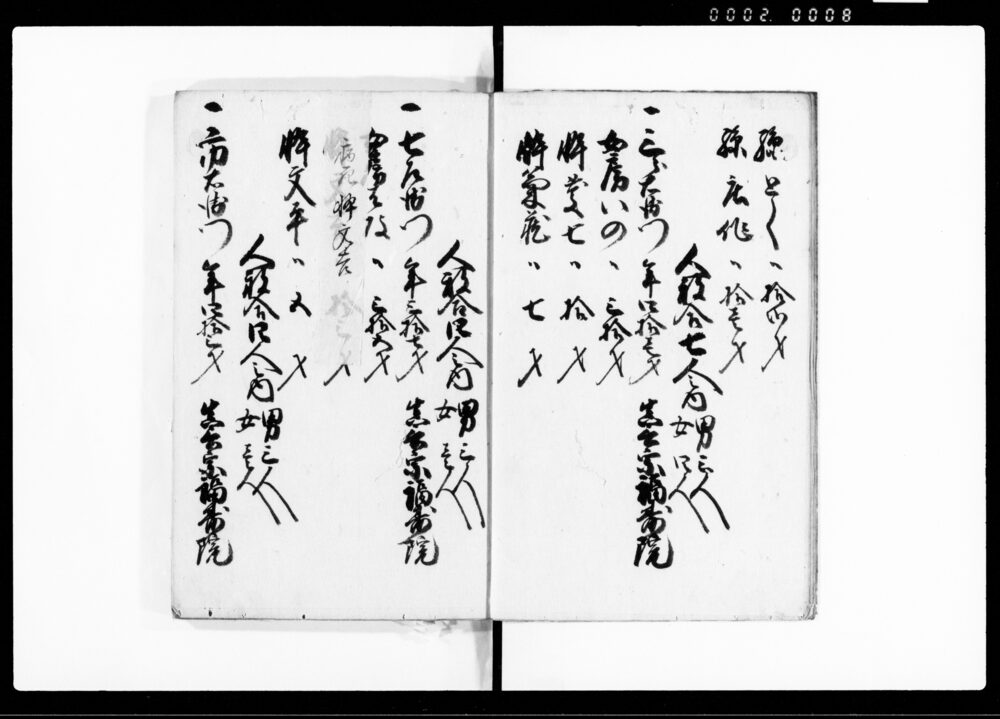 0002. 0008
孫 とく 〃 拾四才
孫 庄作 〃 拾壱才
人数合七人之内 男三人 女四人
一 三右衛門 年四拾壱才 真言宗福寿院
女房 いの 〃 三拾才
忰 七 〃 拾才
忰 菊蔵 〃 七才
人数合四人之内 男三人 女壱人
一 七左衛門 年三拾七才 真言宗福寿院
女房 〃 三拾五才
病死 忰 文吉 拾三才
忰 文平 〃 五才
人数合四人之内 男三人 女壱人
一 右衛門 年四拾三才 真言宗福寿院